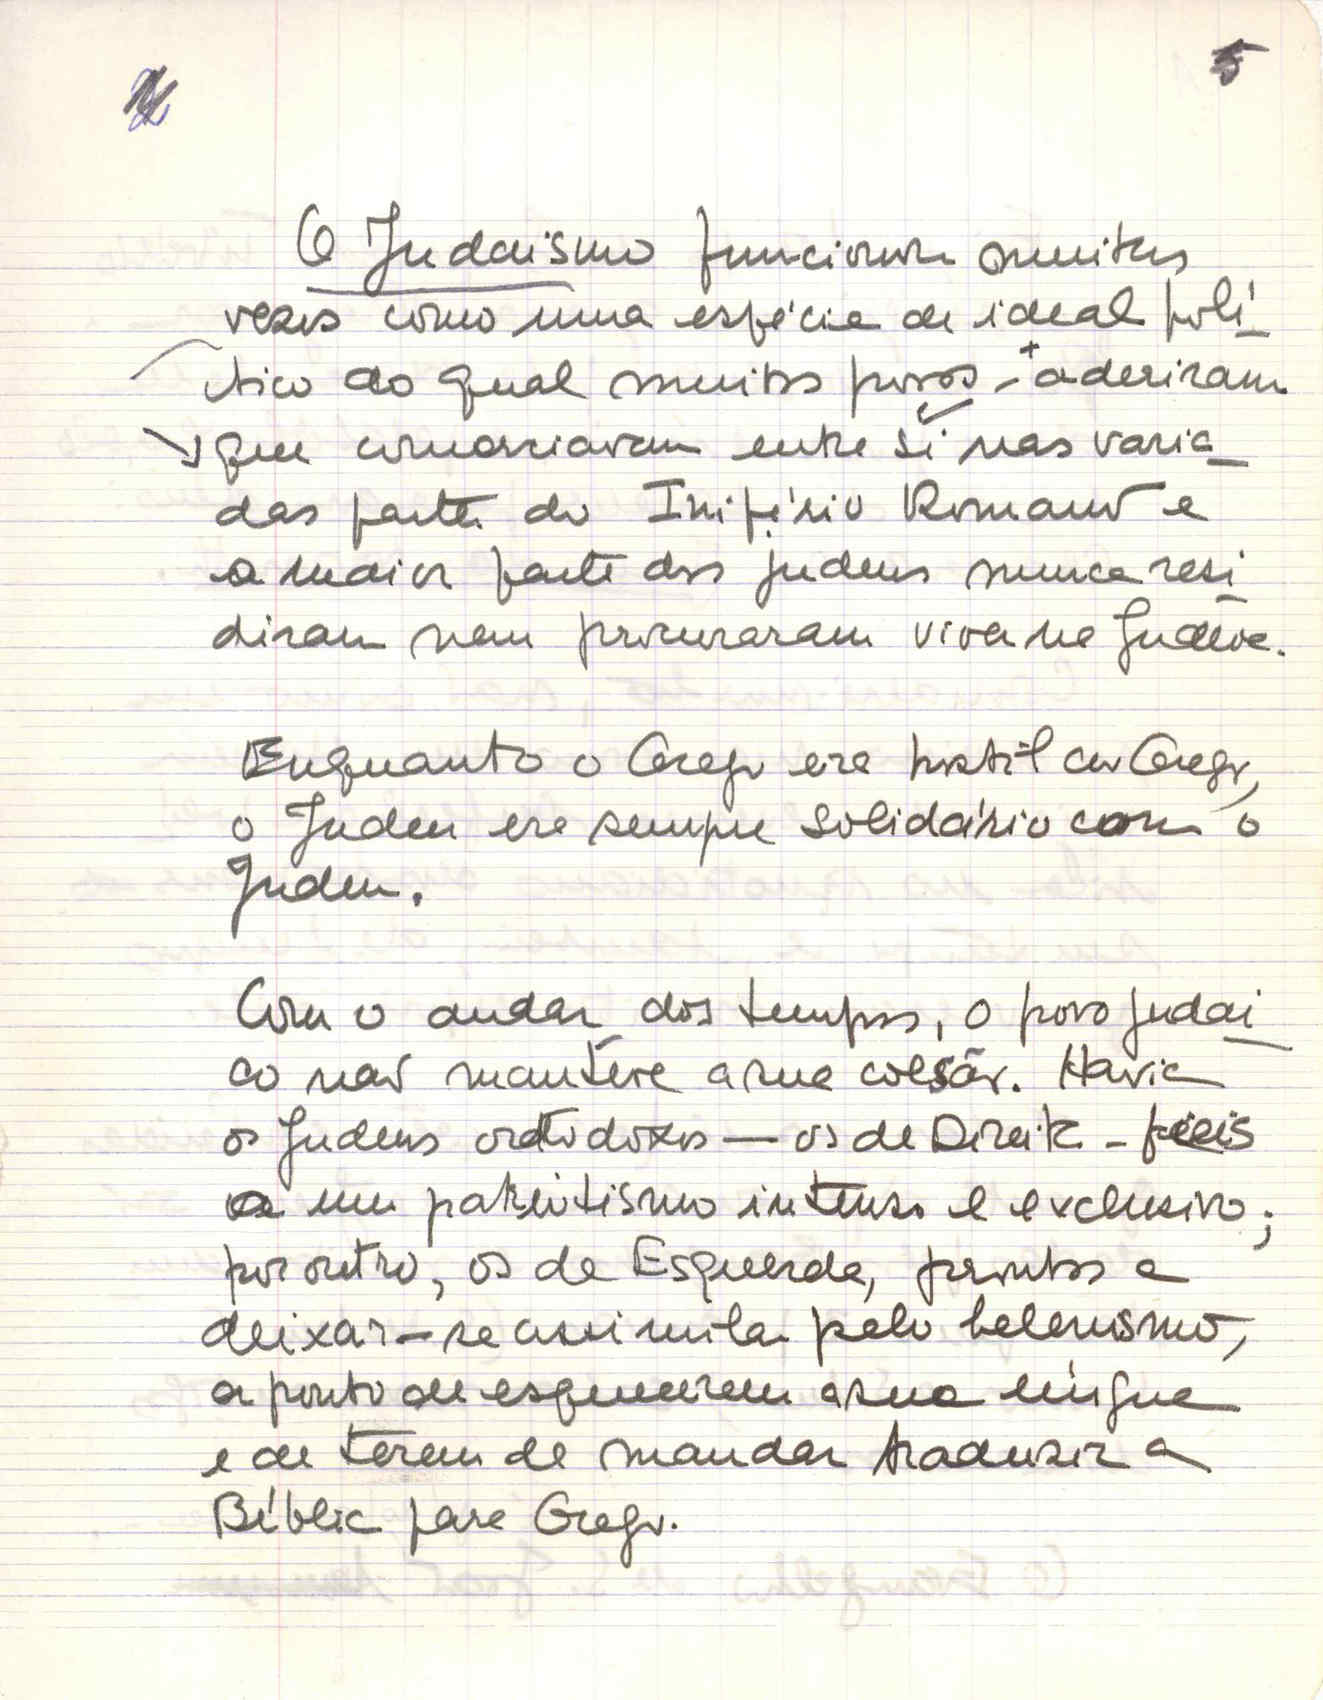 5
O Judaísmo funcionou muitas
vezes como uma espécie de ideal polí-
tico ao qual muitos povos - aderiram
que comerciavam entre si nas varia-
das partes do Império Romano e
a maior parte dos judeus nunca resi-
diram nem procuraram viver na Judeia.
Enquanto o Grego era hostil ao Grego,
o Judeu era sempre solidário com o
Judeu.
Com o andar dos tempos, o povo judai-
co não mantève a sua coesão. Havia
os Judeus ortodoxos — os de Direita - fiéis
a um patriotismo intenso e exclusivo;
por outro, os de Esquerda, prontos a
deixar-se assimilar pelo helenismo,
a ponto de esquecerem a sua língua
e de terem de mandar traduzir a
Bíblia para Grego.